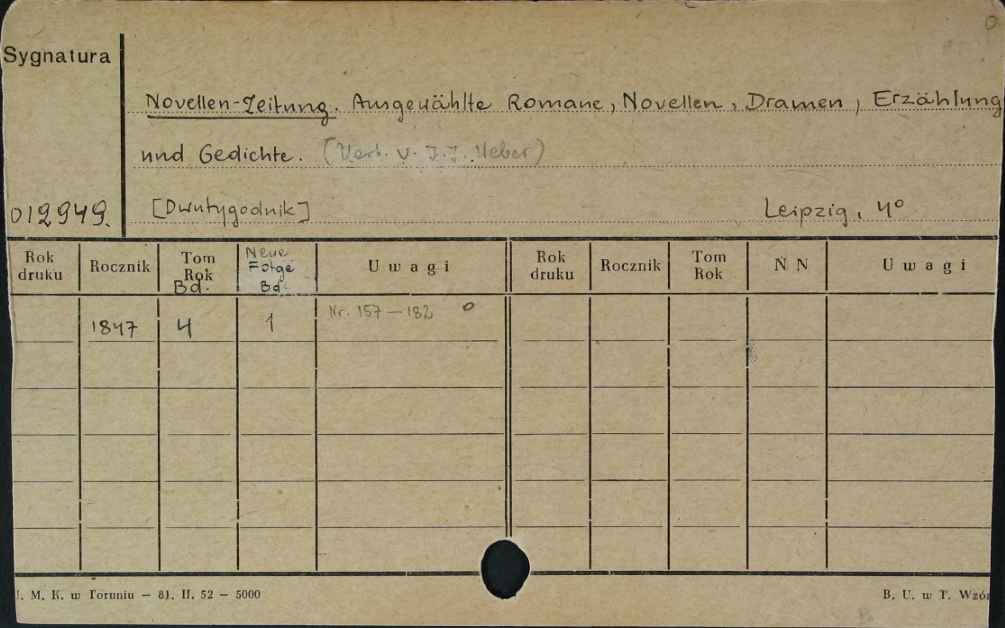 Sygnatura
Novellen-Zeitung. Ausgewählte Romane, Novellen, Dramen, Erzählung
und Gedichte. (Verl. v. J.J. Weber)
012949. [Dwutygodnik] Leipzig, 4°
Rok druku Rocznik Tom Rok Bd. Neue Folge Bd. Uwagi Rok druku Rocznik Tom Rok NN Uwagi
1847 4 1 Nr. 157 — 182
U. M. K. w Toruniu — 81. II. 52 — 5000 B. U. w T. Wzór